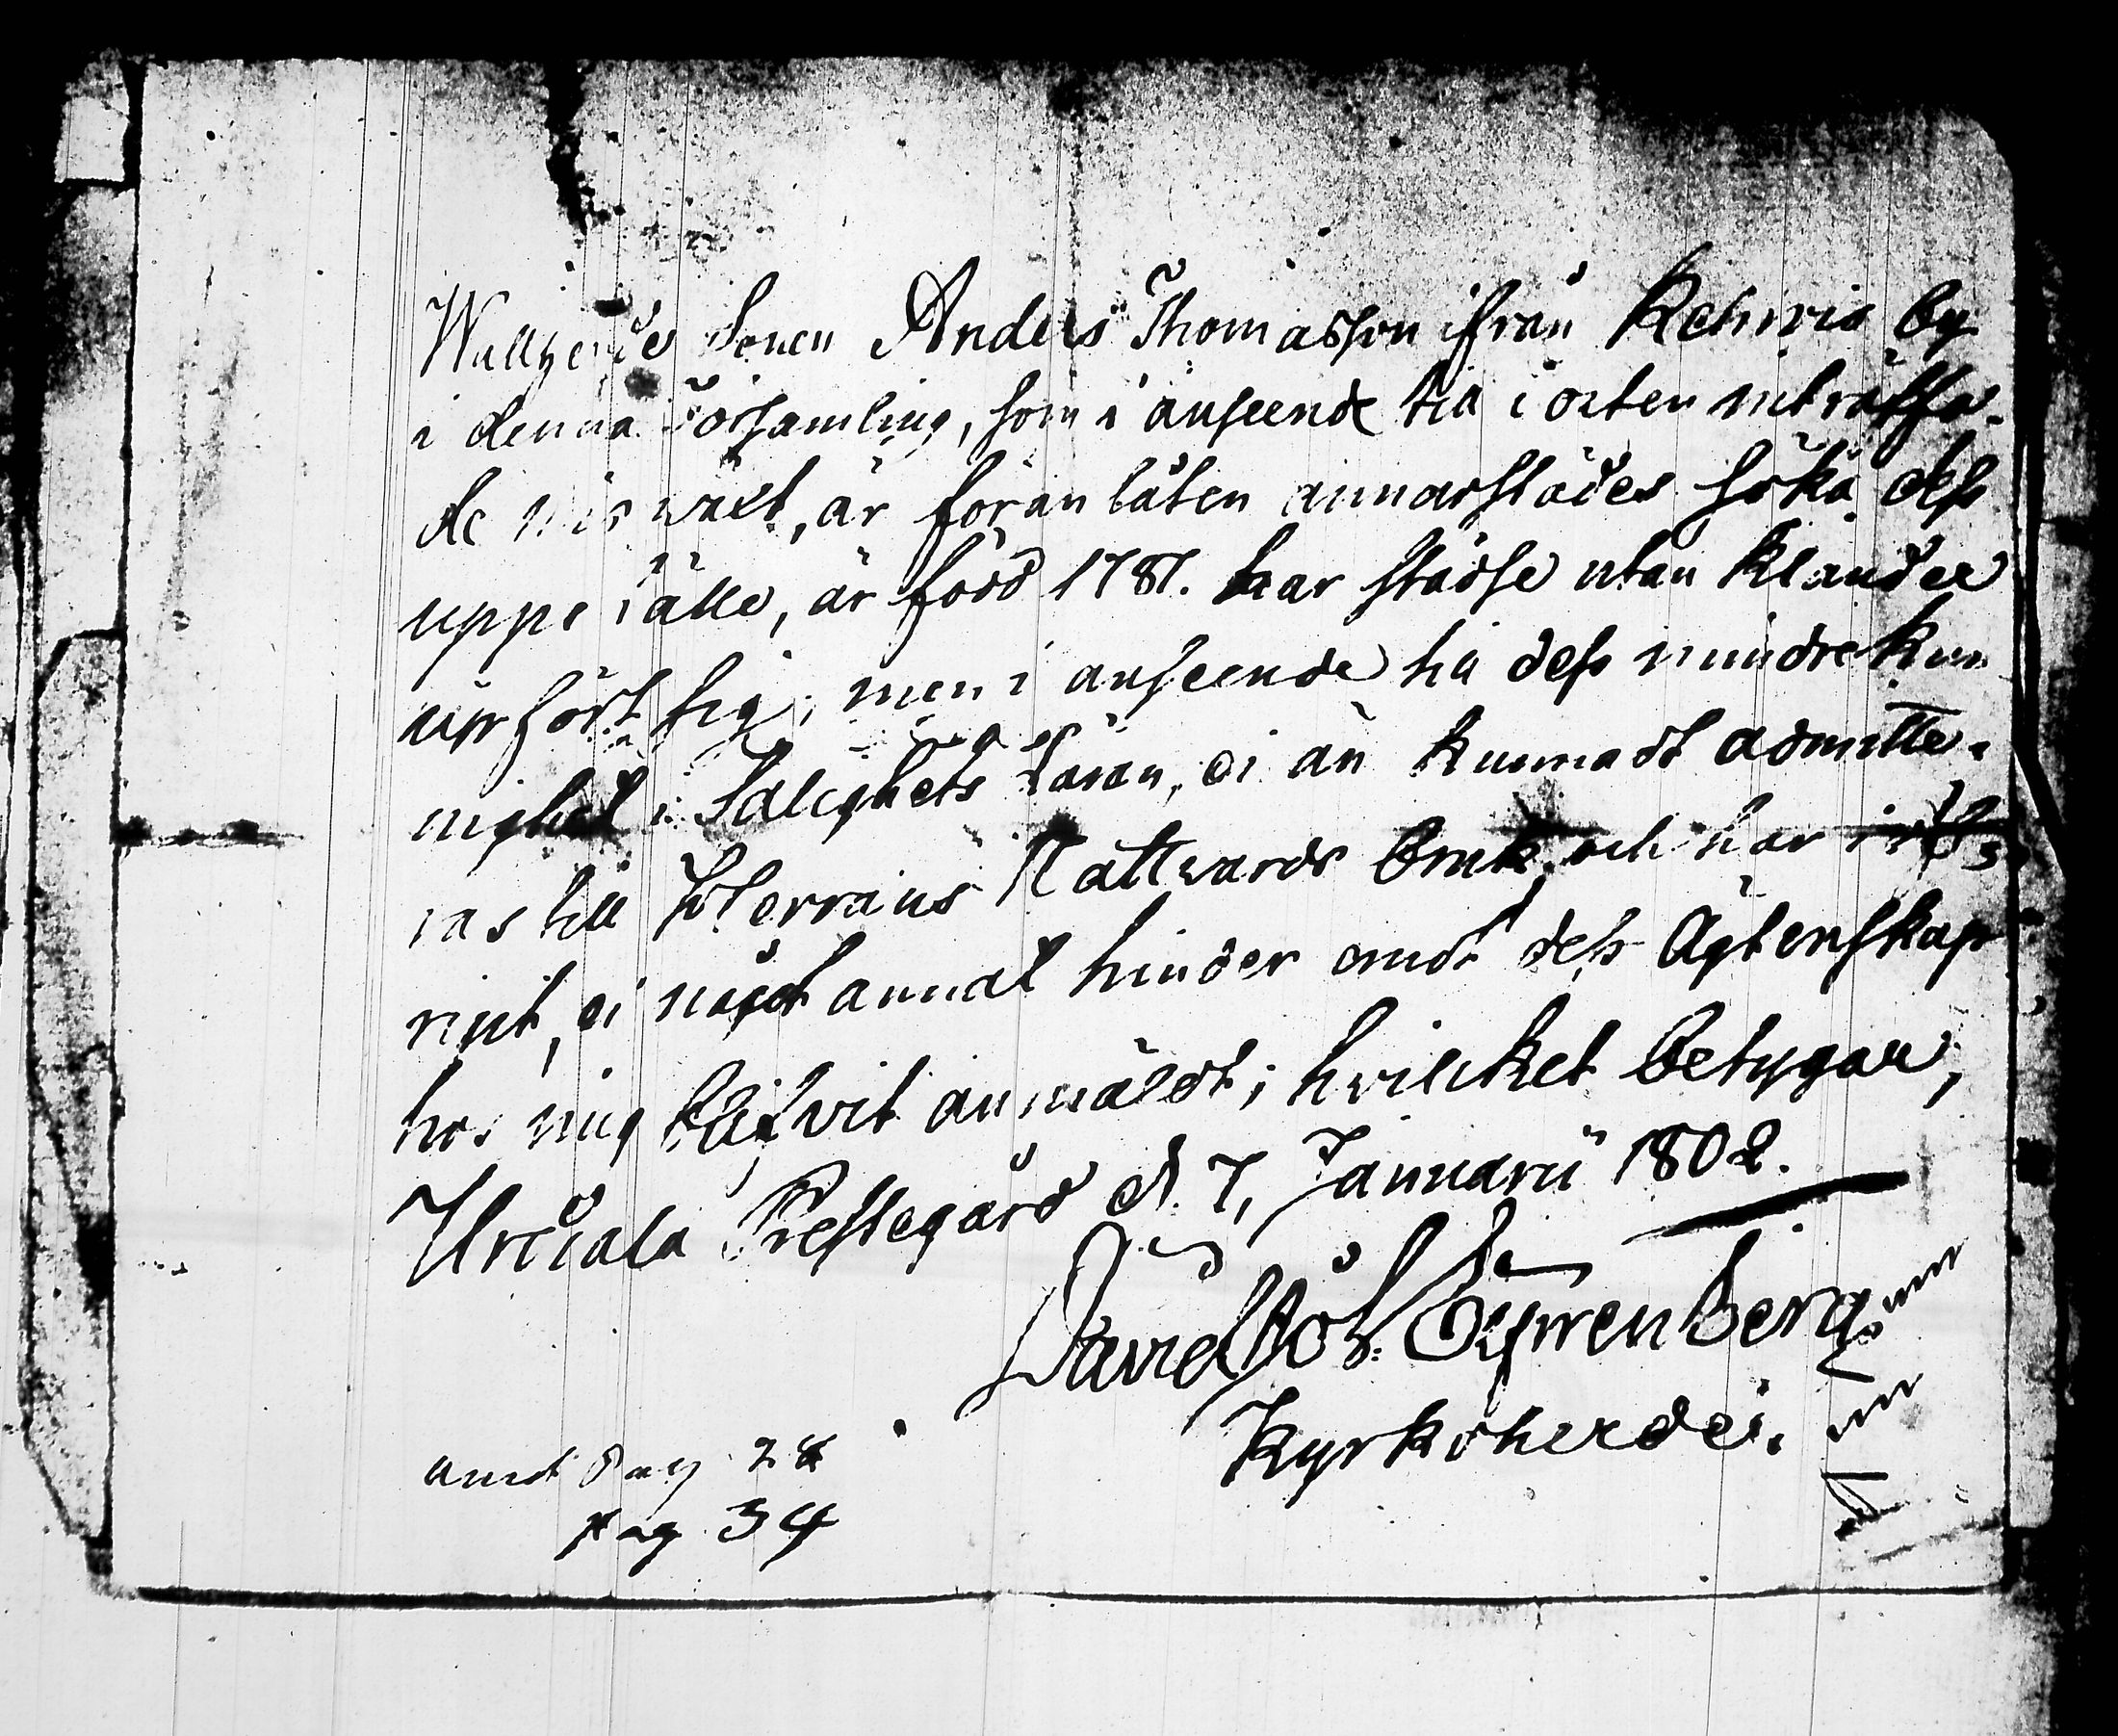 Drengen Anders Thomasson ifrån Kehvis by
i denna Församling, som i anseende till i orten inträffa-
de miswäxt, är föranlåten annorstädes söka dess
uppehälle, är född 1781. har städse utan klander
uppfört sig; men i anseende till dess mindre kun
nighet i Salighets Läran, ei än kunnadt admitte-
ras till HErrans Nattwards bruk, och har
mitt, ei något annat hinder emot dess Ägtenskap
hos mig blifvit anmäldt; hvilcket betygar,
Urdiala Prestegård d. 7, Januarii 1802.
David Joh:
Kyrkoherde.
pag 28
pag 34